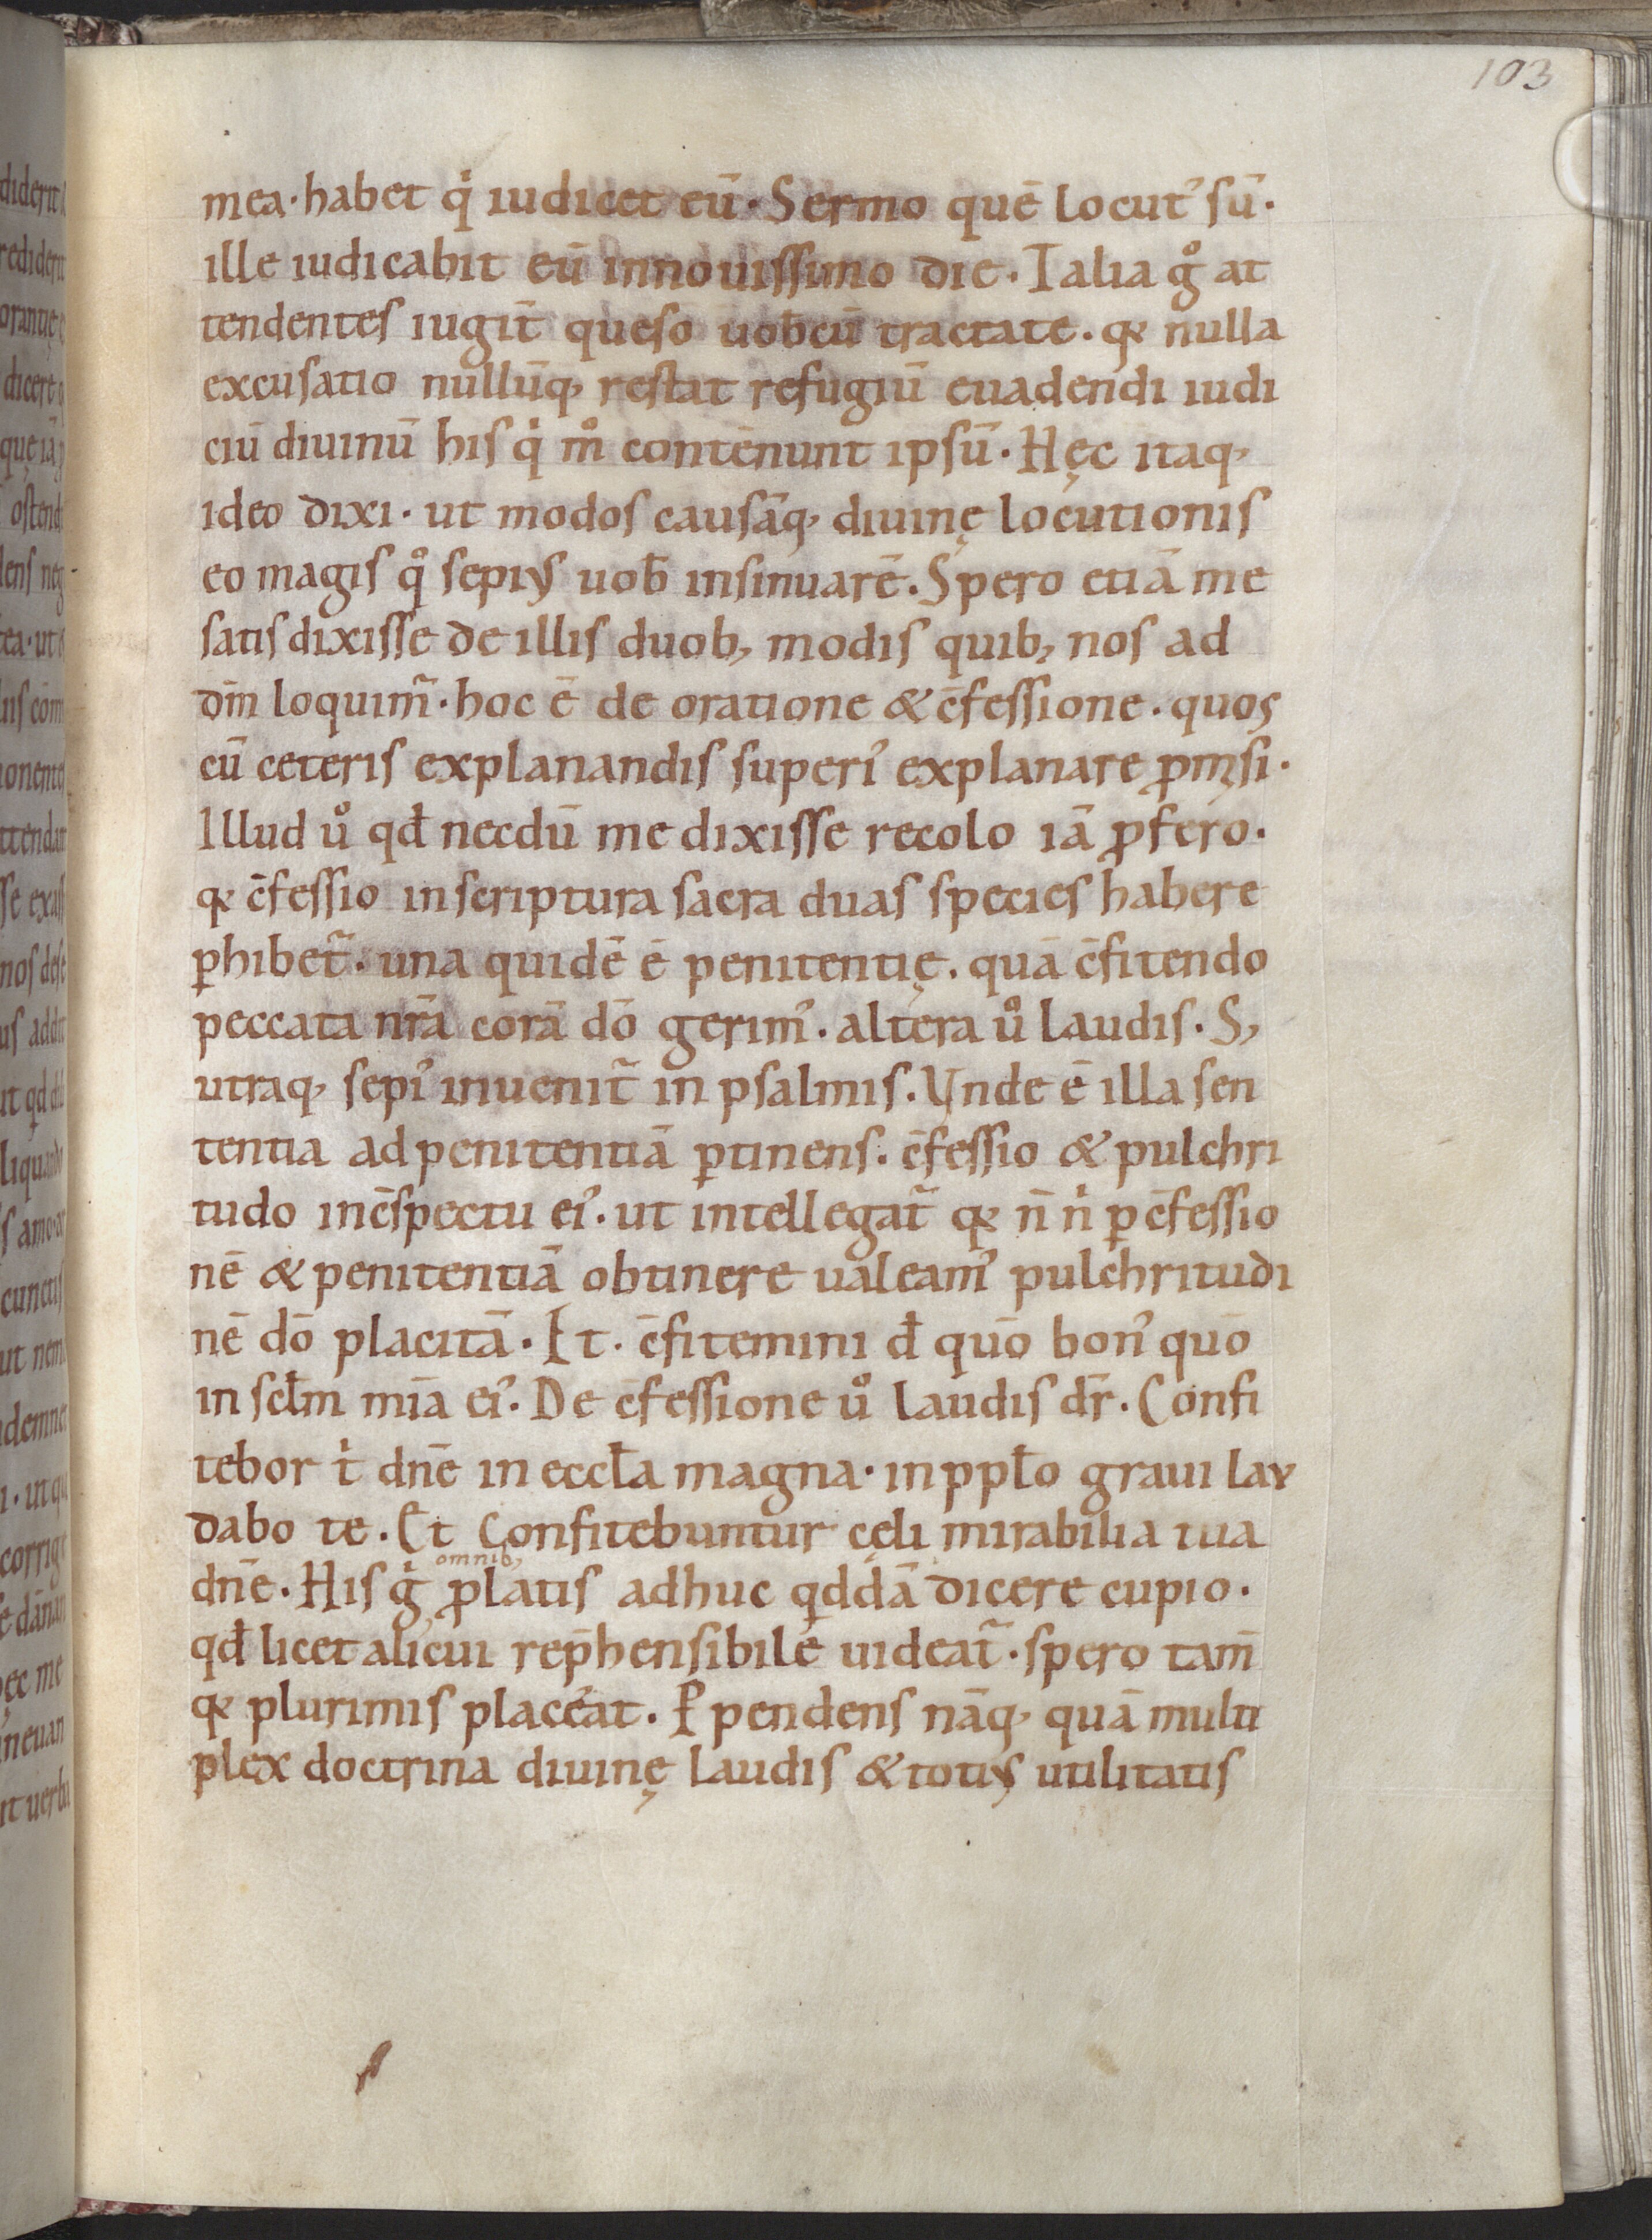 103
mea · habet qͥ iudicet eū · Sermo quē locut᾿ sū ·
ille iudicabit eū innouissimo die . Talia gͦ at
tendentes iugit̄ queso uob̄cū tractate . qꝛ nulla
excusatio nullūq, restat refugiū euadendi iudi
ciū diuinū his qͥ mͦ contēnunt ipsū . Hęc itaq,
ideo dixi · ut modos causāq, diuinę locutionis
eo magis qͦ sepiꝰ uob̄ insinuarē . Spero etiā me
satis dixisse de illis duob, modis quib, nos ad
dm̄ loquim̃ · hoc ē de oratione & c̄fessione . quos
cū ceteris explanandis superi᾿ explanare ꝓmisi ·
Illud uͦ qđ necdū me dixisse recolo iā ꝓfero .
qꝛ c̄fessio in scriptura sacra duas species habere
ꝑhibet̃ . una quidē ē penitentię . quā c̄fitendo
peccata nr̄a corā dō gerim᾿ . altera uͦ laudis . S,
utraq, sepi᾿ inuenit̃ in psalmis . Vnde ē illa sen
tentia ad penitentiā ꝑtinens . c̄fessio & pulchri
tudo inc̄spectu ei᾿ . ut intellegat̃ qꝛ n̄ nͥ ꝑ c̄fessio
nē & penitentiā obtinere ualeam᾿ pulchritudi
nē dō placitā . It . c̄fitemini đ quō bon᾿ quō
in sc̄lm mīa ei᾿ . De c̄fessione uͦ laudis dr̄ . Confi
tebor tͥ dn̄e in eccƚa magna · in ppƚo graui lau
dabo te . Et Confitebuntur cęli mirabilia tua
omnib,
dn̄e . His gͥ ꝓlatis adhuc qddā dicere cupio .
qđ licet alicui rep̄hensibile uideat̃ . spero tam̄
qꝛ plurimis placeat . Ꝑpendens nāq, quā multi
plex doctrina diuinę laudis & totiꝰ utilitatis